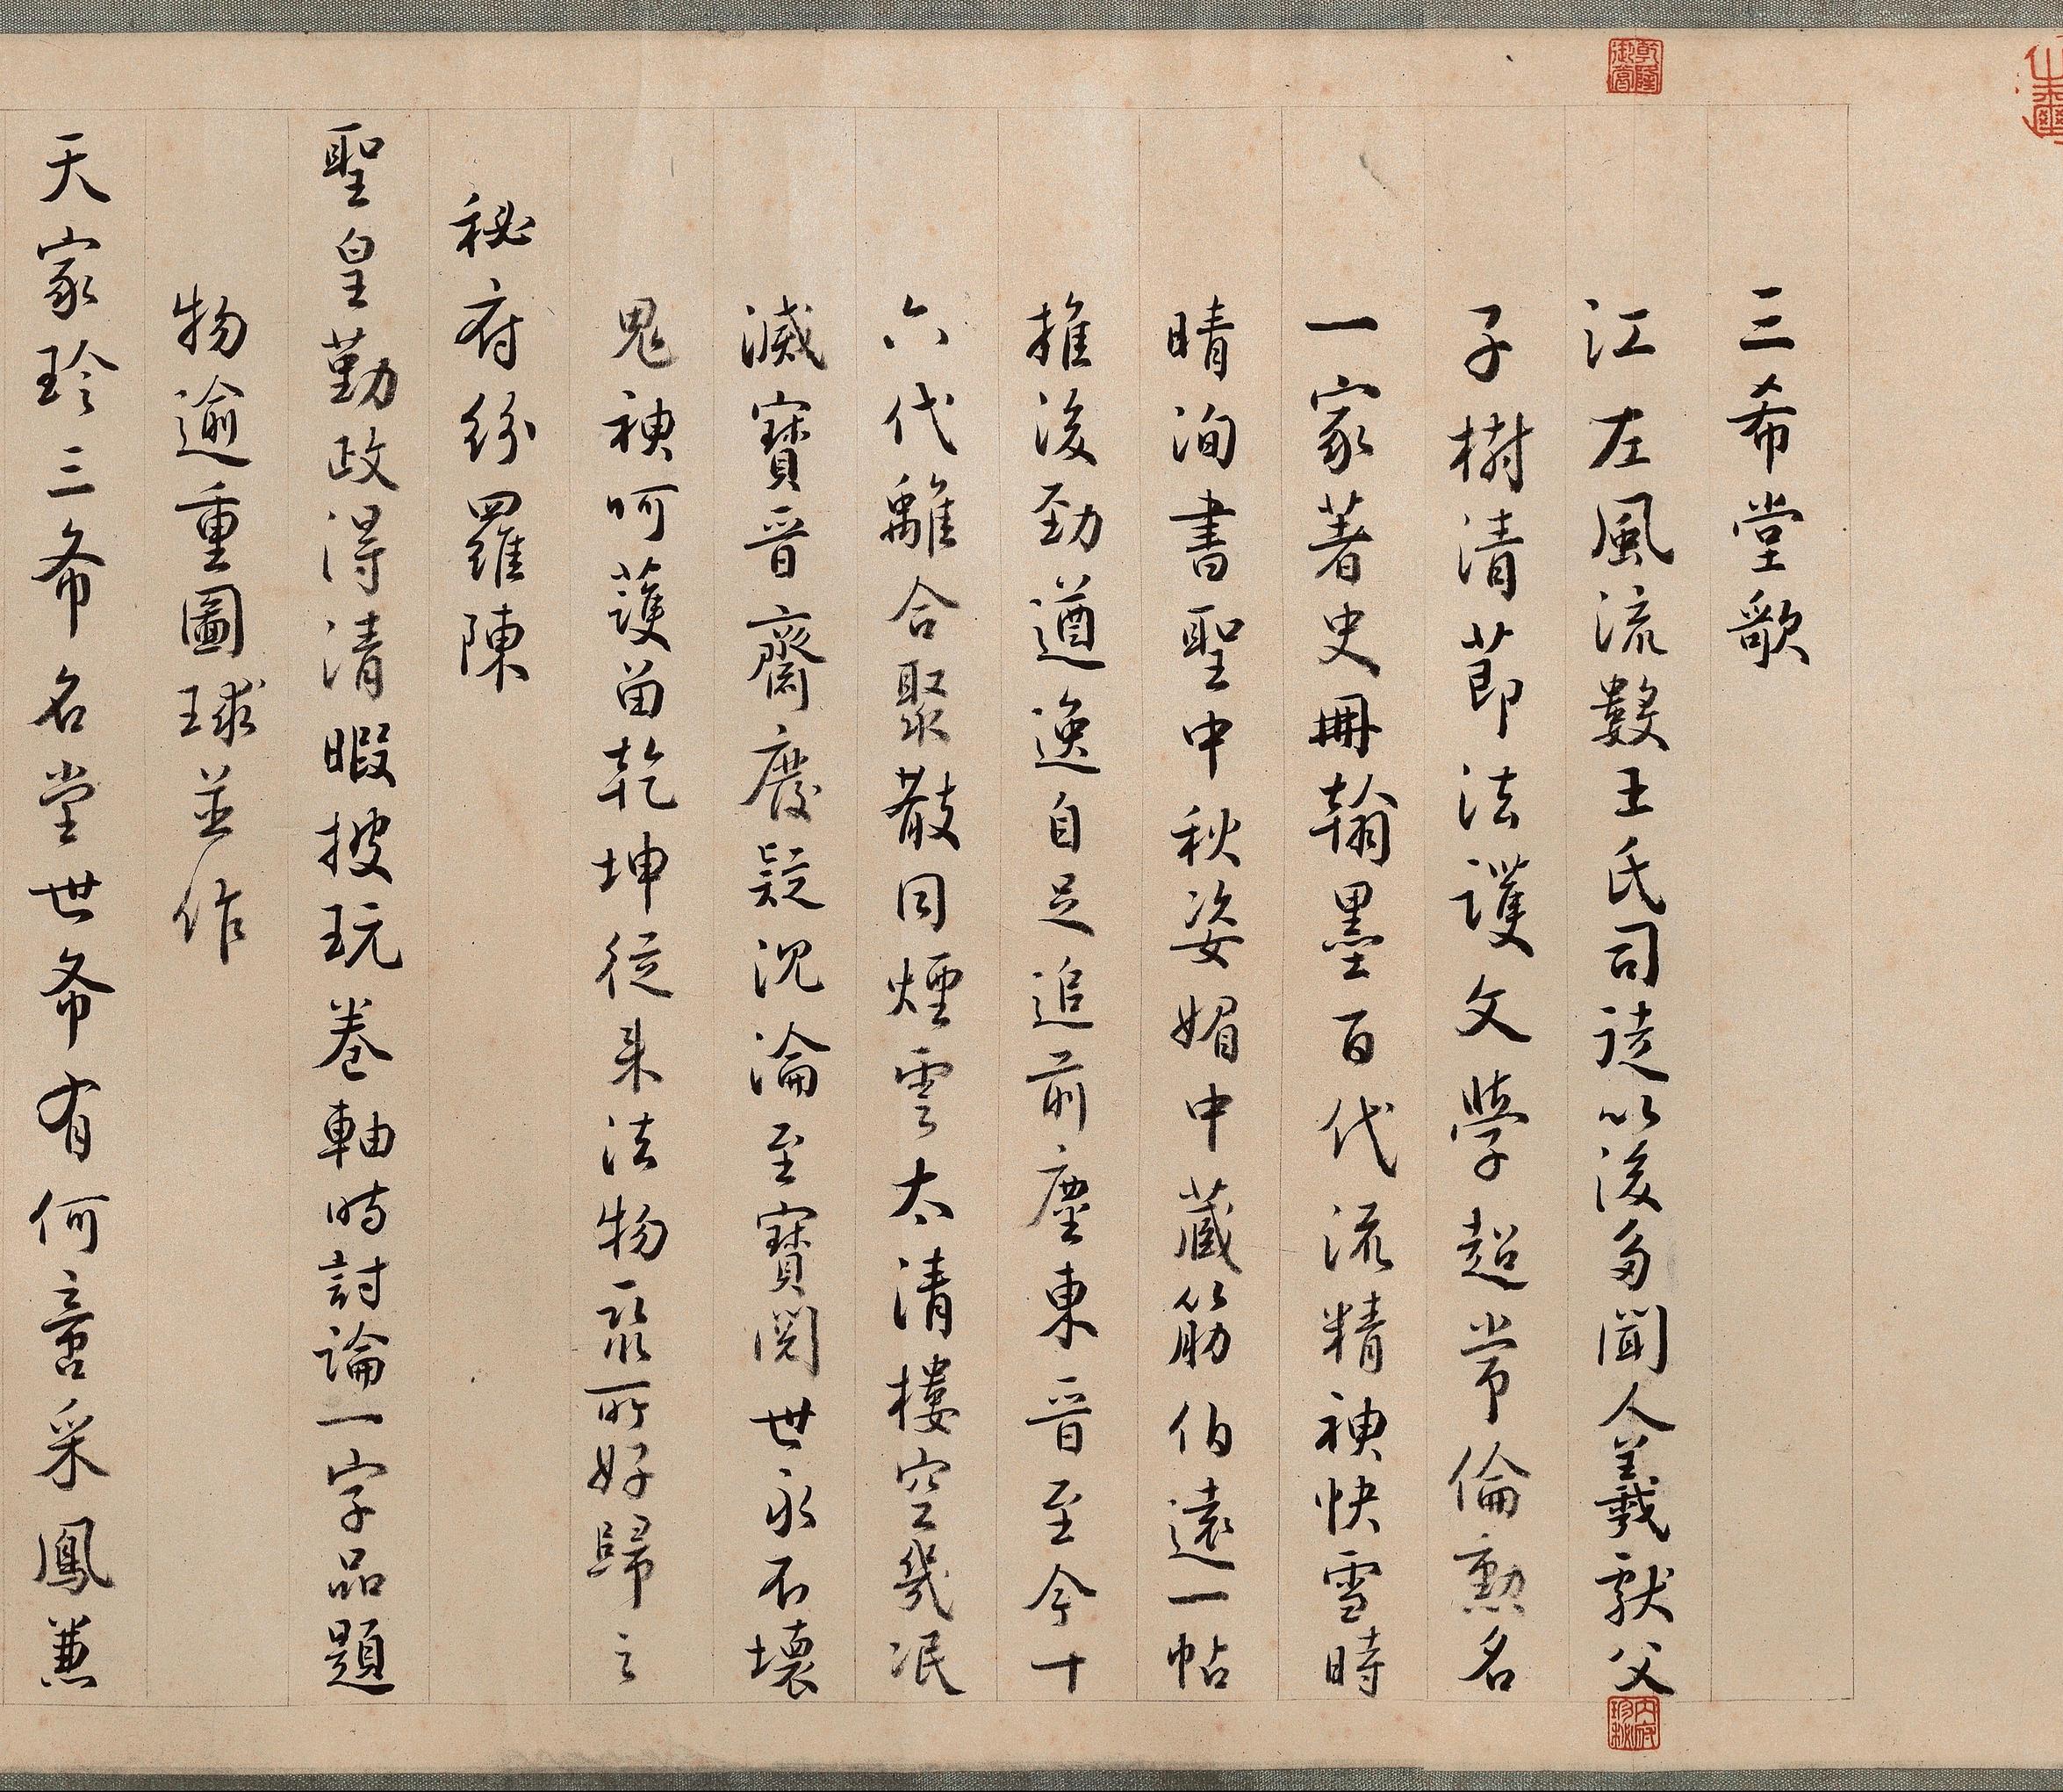 三希堂歌
江左風流數王氏司徒以後多聞人羲獻父
子樹清節法護文學超常倫勲名
一家著史冊翰墨百代流精神快雪時
晴洵書聖中秋姿媚中藏筋伯遠一帖
推後勁遒逸自足追前塵東晉至今十
六代離合聚散同煙雲太清樓空幾泯
滅寶晉齋廢疑沉淪至寶閱世永不壞
鬼神呵護留乾坤從来法物聚所好歸之
秘府紛羅陳
聖皇勤政得清暇披玩卷軸時討論一字品題
物逾重圖球並作
天家珍三希名堂世希有何啻采鳳兼
乾隆御賞
内府珍秘